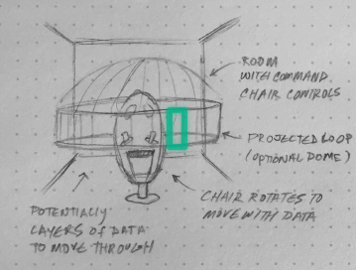 ROOM
WITH COMMAND
CHAIR CONTROLS
PROJECTED LOOP
(OPTIONAL DOME)
CHAIR ROTATES TO
MOVE WITH DATA
POTENTIALLY
LAYERS OF DATA
TO MOVE THROUGH